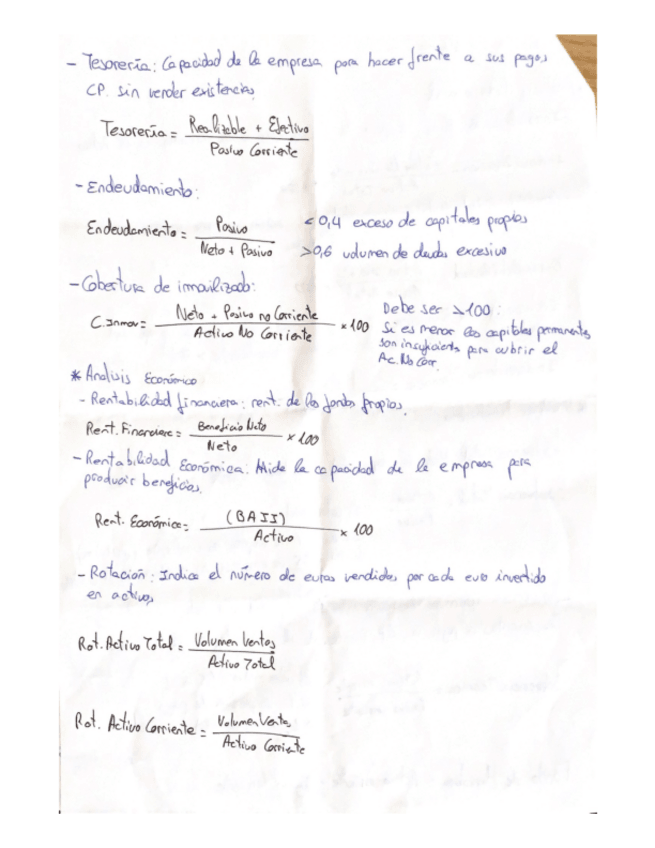 - Tesorería: Capacidad de la empresa para hacer frente a sus pagos
CP. sin vender existencias.
Tesorería = Realizable + Efectivo / Pasivo Corriente
- Endeudamiento:
Endeudamiento = Pasivo / Neto + Pasivo
< 0,4 exceso de capitales propios
> 0,6 volumen de deudas excesivo
- Cobertura de inmovilizado:
C. Inmov = Neto + Pasivo no Corriente / Activo No Corriente × 100
Debe ser >100:
Si es menor los capitales permanentes
son insuficientes para cubrir el
Ac. No Corr.
* Analisis Económico
- Rentabilidad financiera: rent. de los fondos propios.
Rent. Financiera = Beneficio Neto / Neto × 100
- Rentabilidad Económica: Mide la capacidad de la empresa para
producir beneficios.
Rent. Económica = (BAII) / Activo × 100
- Rotación: Indica el número de euros vendidos por cada euro invertido
en activos
Rot. Activo Total = Volumen Ventas / Activo Total
Rot. Activo Corriente = Volumen Ventas / Activo Corriente